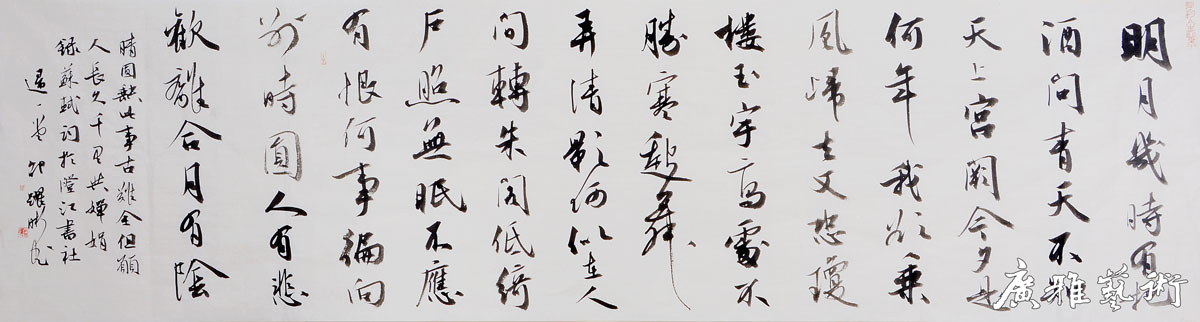 明月幾時有把
酒問青天不知
天上宮闕今夕是
何年我欲乘
風歸去又恐瓊
樓玉宇高處不
勝寒起舞
弄清影何似在人
間轉朱閣低綺
戶照無眠不應
有恨何事偏向
別時圓人有悲
歡離合月有陰
晴圓缺此事古難全但願
人長久千里共嬋娟
錄蘇軾詞於澄江書社
廣雅藝術